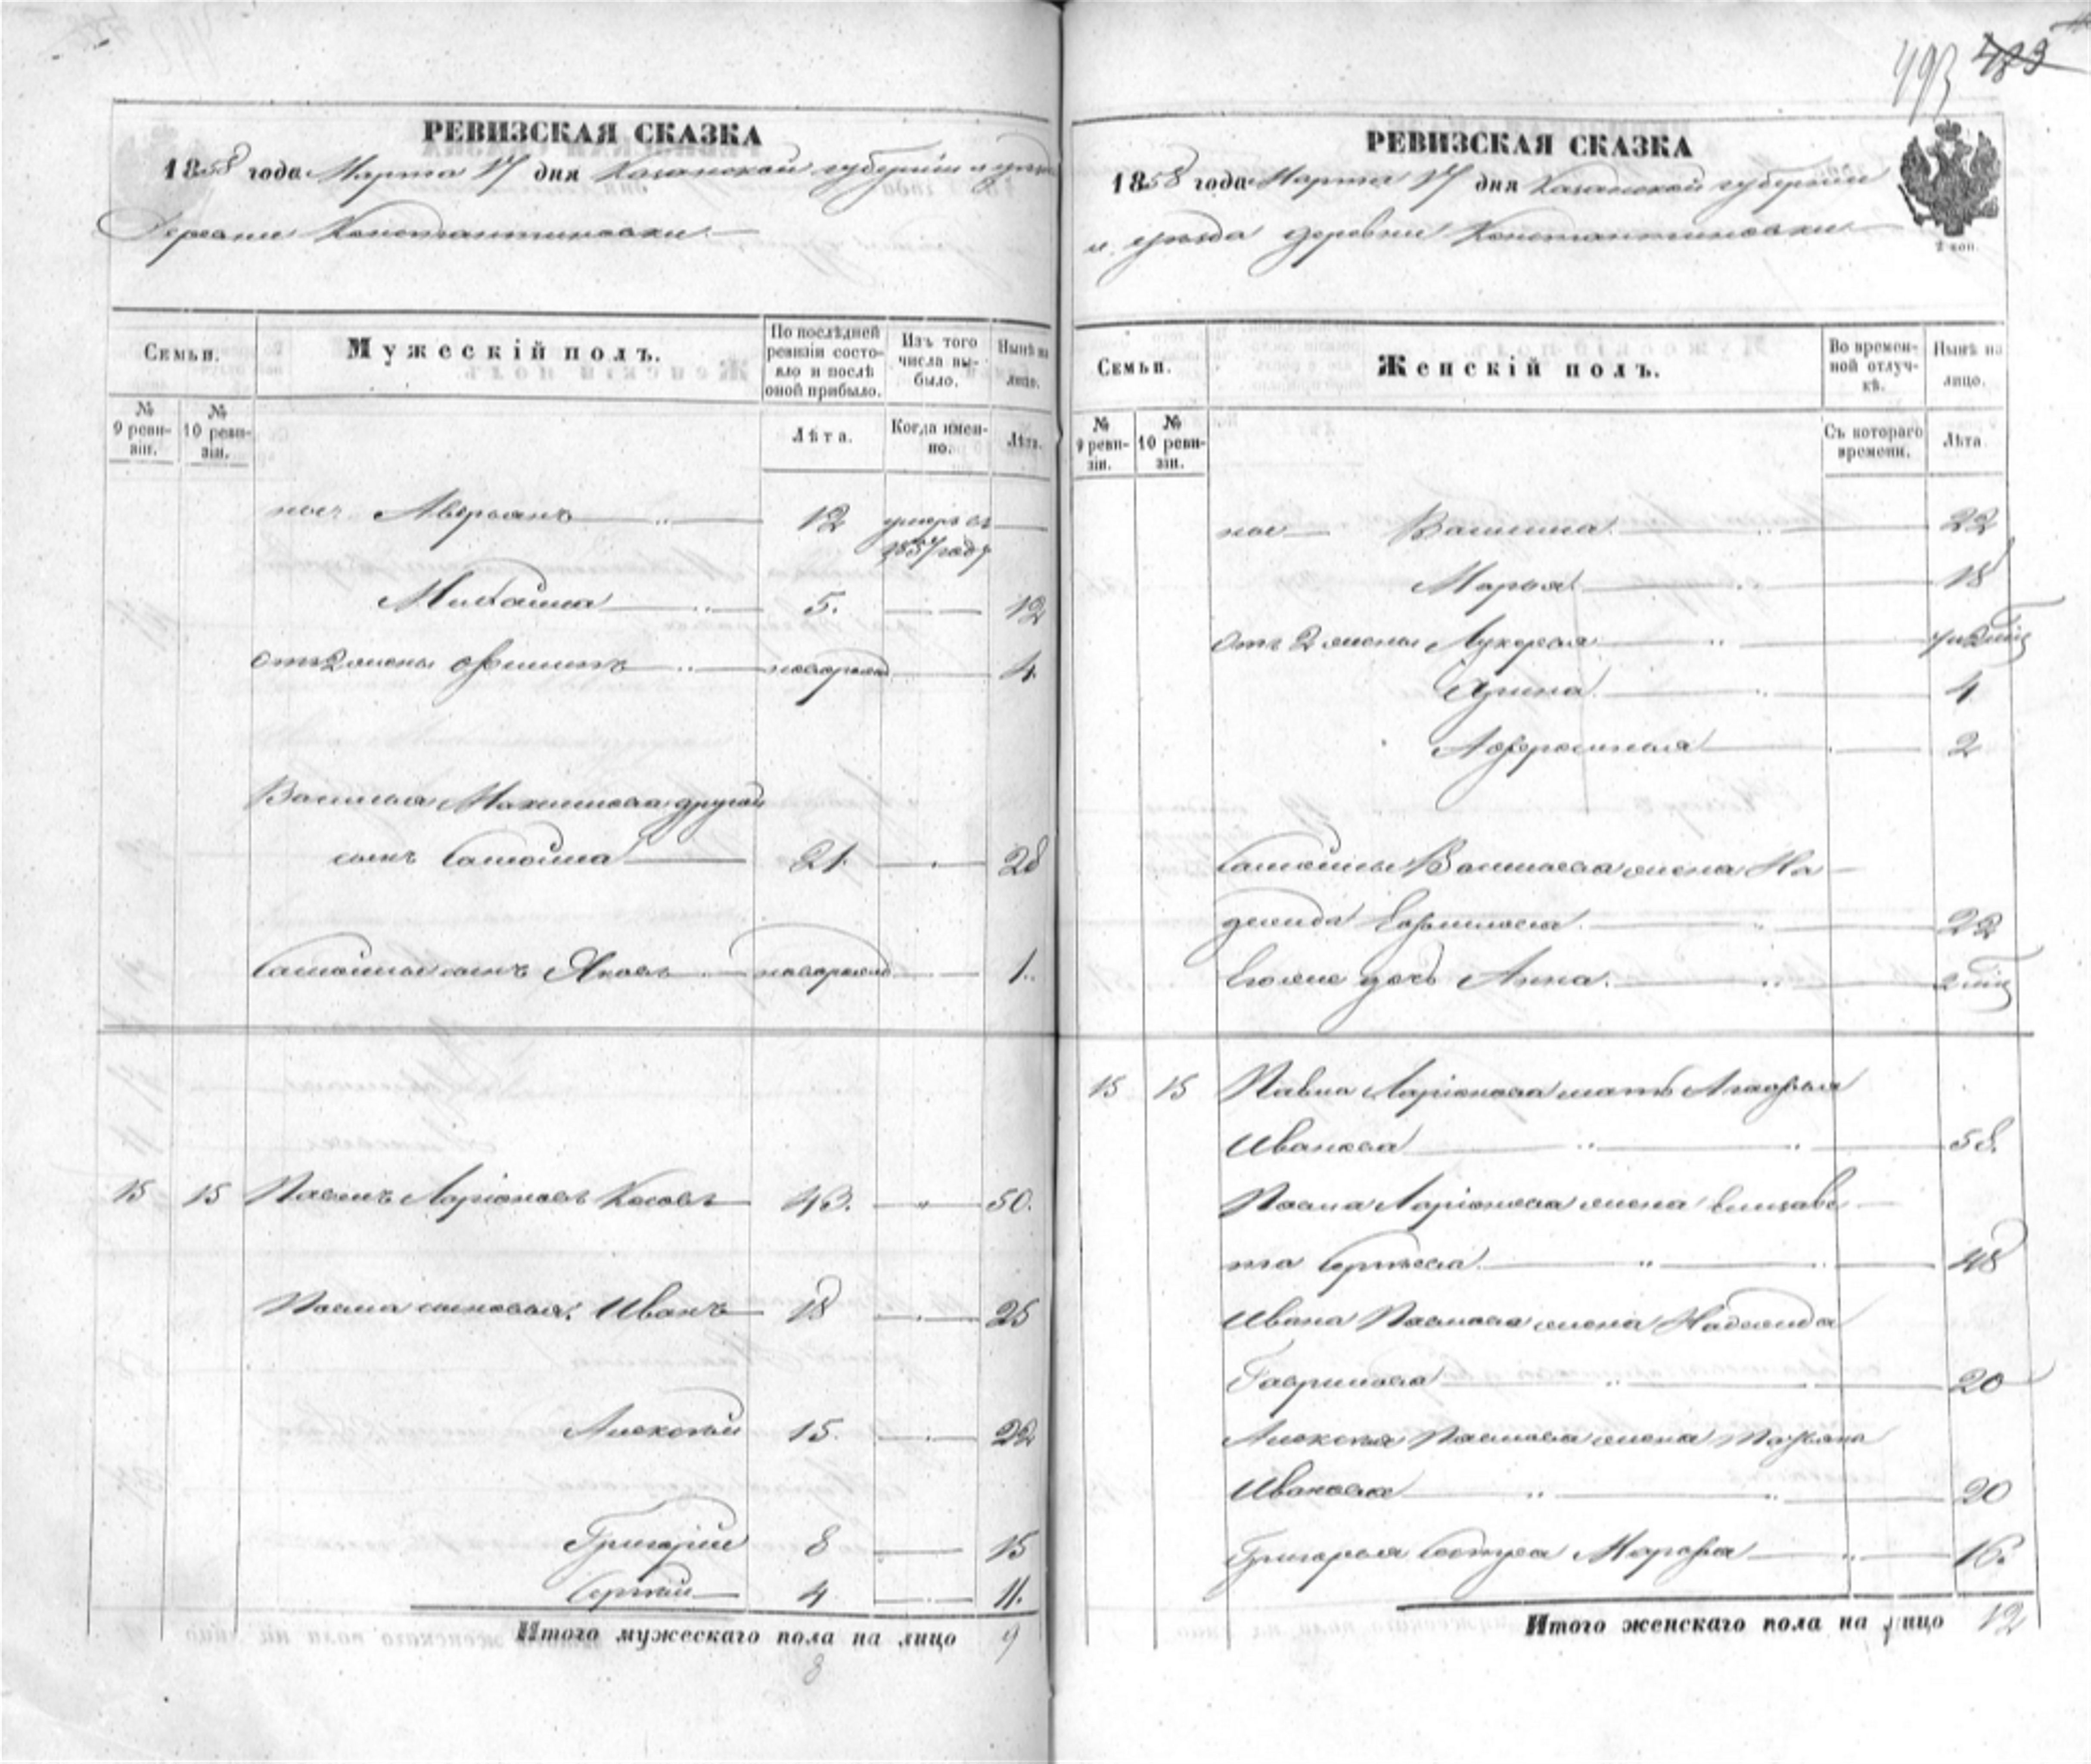 493 423
РЕВИЗСКАЯ СКАЗКА
1858 года Марта 17 дня Казанской губернии и уезда
Деревни Константиновки
Семьи.
Мужескій полъ.
По послѣдней ревизіи состояло и послѣ оной прибыло.
Изъ того числа выбыло.
Нынѣ на лицо.
№ 9 ревизіи.
№ 10 ревизіи.
Лѣта.
Когда именно.
Лѣта.
Аверьянъ 12 умеръ въ
1857 году
5. 12
отъ 2 жены новорожд 4
Василья Максимова другой
сынъ 21. 28
сынъ Яковъ новорожд 1.
15 15 Павелъ Ларіоновъ Косовъ 43. 50.
Павла сыновья: Иванъ 18 25
Алексѣй 15. 22
Григорій 8 15
Сергѣй 4 11.
Итого мужескаго пола на лицо 9
8
РЕВИЗСКАЯ СКАЗКА
1858 года Марта 17 дня Казанской губерніи
и уѣзда деревни Константиновки
2 коп.
Семьи.
Женскій полъ.
Во временной отлучкѣ.
Нынѣ на лицо.
№ 9 ревизіи.
№ 10 ревизіи.
Съ котораго времени.
Лѣта.
22
Марья 18
Отъ 2 жены Лукерья
Арина 4
2
Васильева жена На
дежда Ефимова 22
Его же дочь Анна.
15 15 Павла Ларіонова мать Агафья
Иванова 58.
Павла Ларіонова жена Елизаве
та Сергѣева 48
Ивана Павлова жена Надежда
Гаврилова 20
Алексѣя Павлова жена Татьяна
Иванова 20
Григорья сестра Марфа 16.
Итого женскаго пола на лицо 12